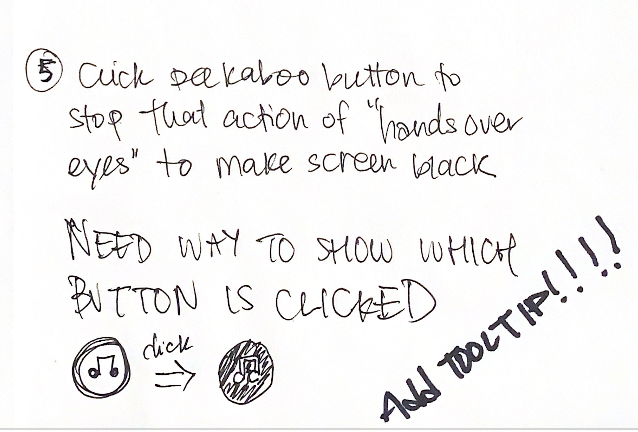 5 Click peekaboo button to
stop that action of "hands over
eyes" to make screen black
NEED WAY TO SHOW WHICH
BUTTON IS CLICKED
click
Add TOOLTIP!!!!